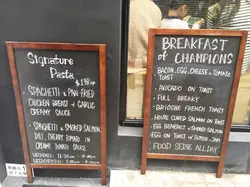 Signature
Pasta
• SPAGHETTI & PAN FRIED
CHICKEN BREAST w GARLIC
CREAMY SAUCE
• SPAGHETTI & SMOKED SALMON,
DILL, CREAMY TOMATO IN
CREAMY TOMATO
SAUCE
WEEKDAYS
WEEKENDS
BREAKFAST of
CHAMPIONS
BACON, EGG, CHEESE & TOMATO
TOAST
• AVOCADO ON TOAST
• FULL BREAKY
• BRIOCHE FRENCH TOAST
• HOUSE CURED SALMON ON TOAST
• EGG BENEDICT w SMOKED SALMON
• EGG ON TOAST w BUTTER & JAM
FOOD SERVE ALL DAY